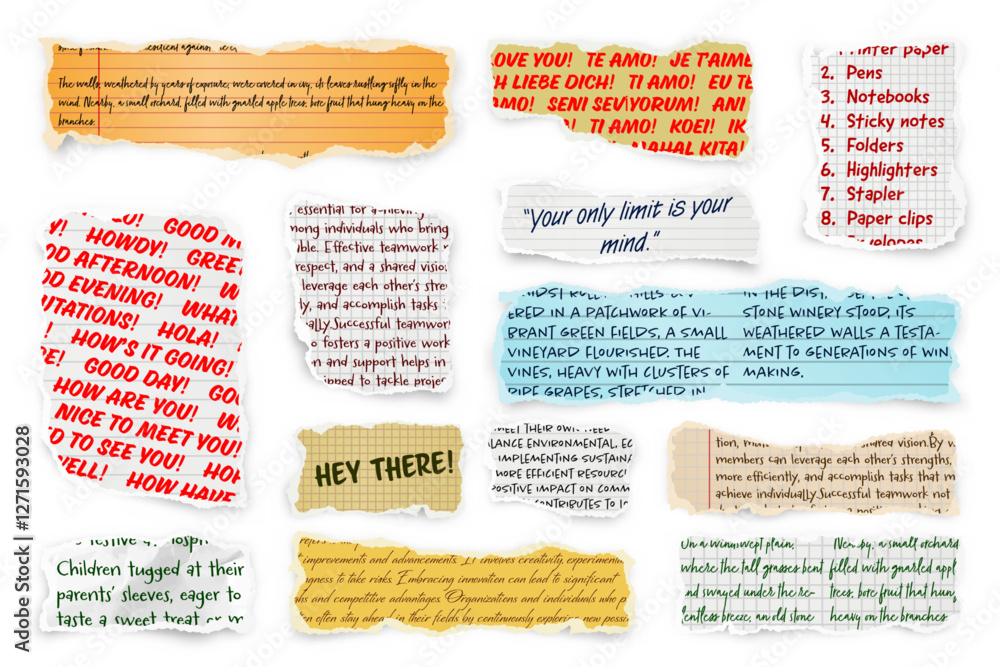 The walls, weathered by years of exposure, were covered in ivy, its leaves rustling softly in the
wind. Nearby, a small orchard, filled with gnarled apple trees, bore fruit that hung heavy on the
branches.
LOVE YOU! TE AMO! JE T'AIME
CH LIEBE DICH! TI AMO! EU TE
AMO! SENI SEVIYORUM! ANI
TI AMO! KOEI! IK
MAHAL KITA!
Printer paper
2. Pens
3. Notebooks
4. Sticky notes
5. Folders
6. Highlighters
7. Stapler
8. Paper clips
Envelopes
"Your only limit is your
mind."
GOOD M
HOWDY! GREE
OD AFTERNOON!
OD EVENING! WHAT
UTATIONS! HOLA!
HOW'S IT GOING!
E! GOOD DAY! GOO
HOW ARE YOU! W
NICE TO MEET YOU!
D TO SEE YOU! HOW
WELL! HO
HOW HAVE
essential for achieving
mong individuals who bring
ble. Effective teamwork
respect, and a shared vision
leverage each other's stre
ly, and accomplish tasks
ally.Successful teamwor
o fosters a positive work
n and support helps in
ipped to tackle projec
MIDST ROLLING HILLS
ERED IN A PATCHWORK OF VI-
BRANT GREEN FIELDS, A SMALL
VINEYARD FLOURISHED. THE
VINES, HEAVY WITH CLUSTERS OF
RIPE GRAPES, STRETCHED IN
IN THE DIST
STONE WINERY STOOD, ITS
WEATHERED WALLS A TESTA-
MENT TO GENERATIONS OF WIN
MAKING.
HEY THERE!
MEET THEIR OWN NEED
LANCE ENVIRONMENTAL, EC
IMPLEMENTING SUSTAINA
MORE EFFICIENT RESOURC
POSITIVE IMPACT ON COMM
CONTRIBUTES TO
tion, m shared vision.By w
members can leverage each other's strengths,
more efficiently, and accomplish tasks that m
achieve individually.Successful teamwork not
a positive
festive
Children tugged at their
parents' sleeves, eager to
taste a sweet treat or
t improvements and advancements. It involves creativity, experimenta
ngness to take risks. Embracing innovation can lead to significant
ns and competitive advantages. Organizations and individuals who p
n often stay ahead in their fields by continuously exploring new possi
On a windswept plain,
where the tall grasses bent
and swayed under the re-
lentless breeze, an old stone
Nearby, a small orchard
filled with gnarled appl
trees, bore fruit that hung
heavy on the branches
Adobe Stock
Adobe Stock | #1271593028